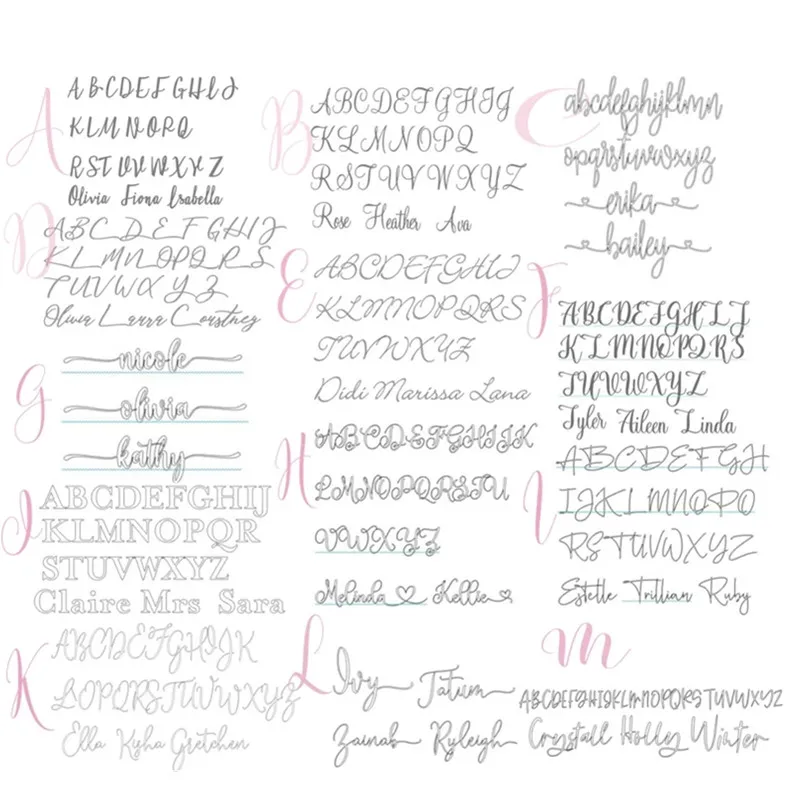 A
A B C D E F G H I J
K L M N O P Q
R S T U V W X Y Z
Olivia Fiona Isabella
B
A B C D E F G H I J
K L M N O P Q
R S T U V W X Y Z
Rose Heather Ava
C
abcdefghijklmn
opqrstuvwxyz
erika
bailey
D
A B C D E F G H I J
K L M N O P Q R S
T U V W X Y Z
Olivia Laura Courtney
E
A B C D E F G H I J
K L M N O P Q R S
T U V W X Y Z
Didi Marissa Lana
F
A B C D E F G H I J
K L M N O P Q R S
T U V W X Y Z
Tyler Aileen Linda
G
nicole
olivia
kathy
H
A B C D E F G H I J K
L M N O P Q R S T U
V W X Y Z
Melinda Kellie
I
A B C D E F G H
I J K L M N O P Q
R S T U V W X Y Z
Estelle Trillian Ruby
J
ABCDEFGHIJ
KLMNOPQR
STUVWXYZ
Claire Mrs Sara
K
A B C D E F G H I J K
L O P Q R S T U V W X Y Z
Ella Kyha Gretchen
L
Ivy Tatum
Zainab Ryleigh
m
ABCDEFGHIJKLMNOPQRSTUVWXYZ
Crystall Holly Winter